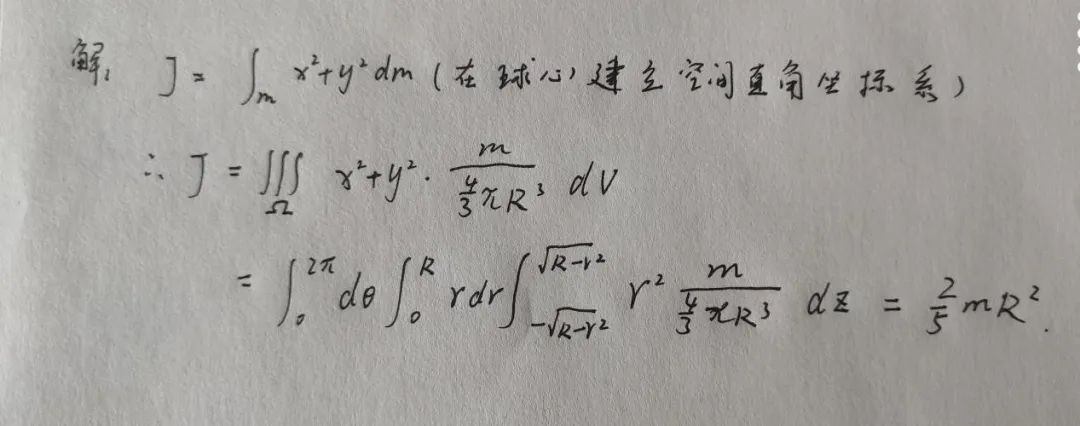 解: J = ∫_m x²+y² dm (在球心建立空间直角坐标系)
∴ J = ∭_Ω x²+y² · m/(4/3 πR³) dV
= ∫_0^{2π} dθ ∫_0^R r dr ∫_{-√(R-r²)}^{√(R-r²)} r² m/(4/3 πR³) dz = 2/5 mR².